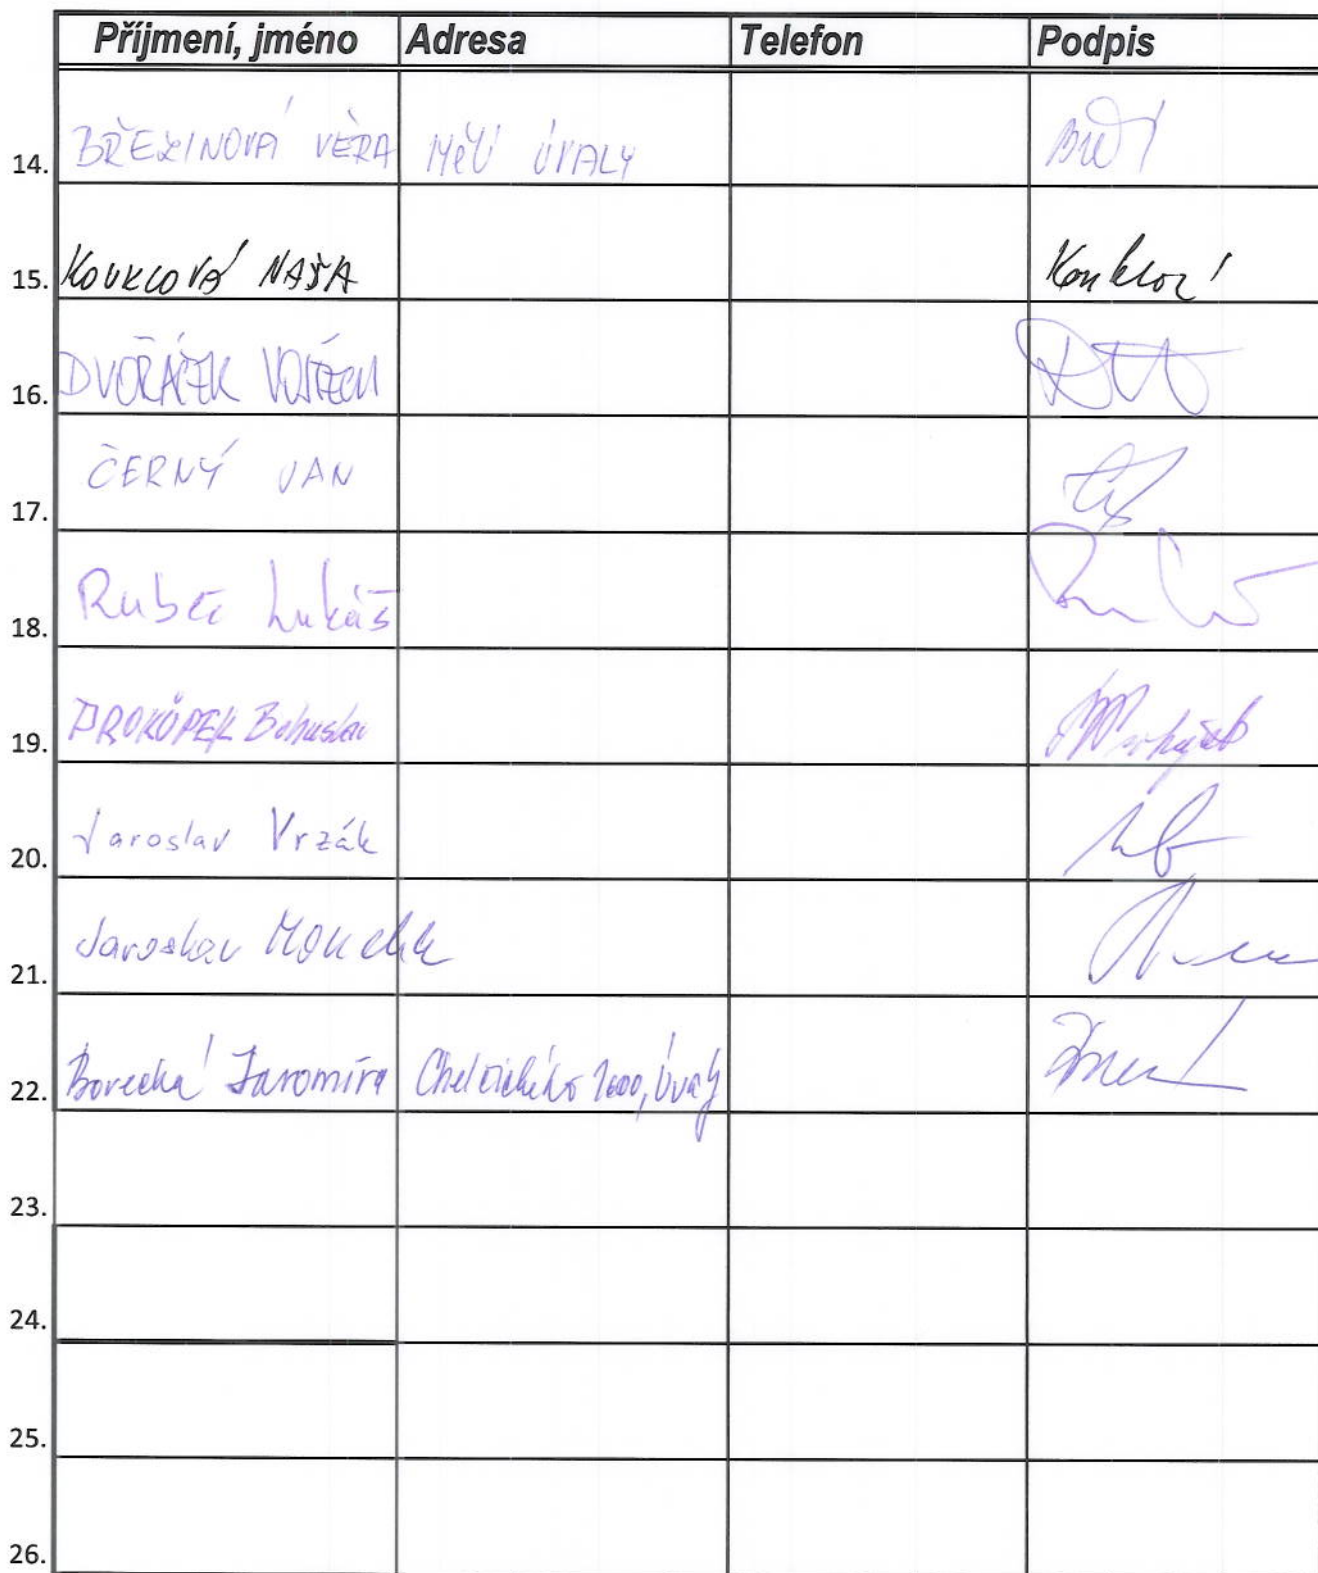 Příjmení, jméno Adresa Telefon Podpis
14. BŘEZINOVÁ VĚRA MěÚ ÚVALY
15. KOUKLOVÁ NAĎA
16. DVOŘÁČEK VOJTĚCH
17. ČERNÝ JAN
18. Lukáš
19. PROKŮPEK Bohuslav
20. Jaroslav Vrzák
21. Jaroslav
22. Borecká Jaromíra Chelčického 1600, Úvaly
23.
24.
25.
26.